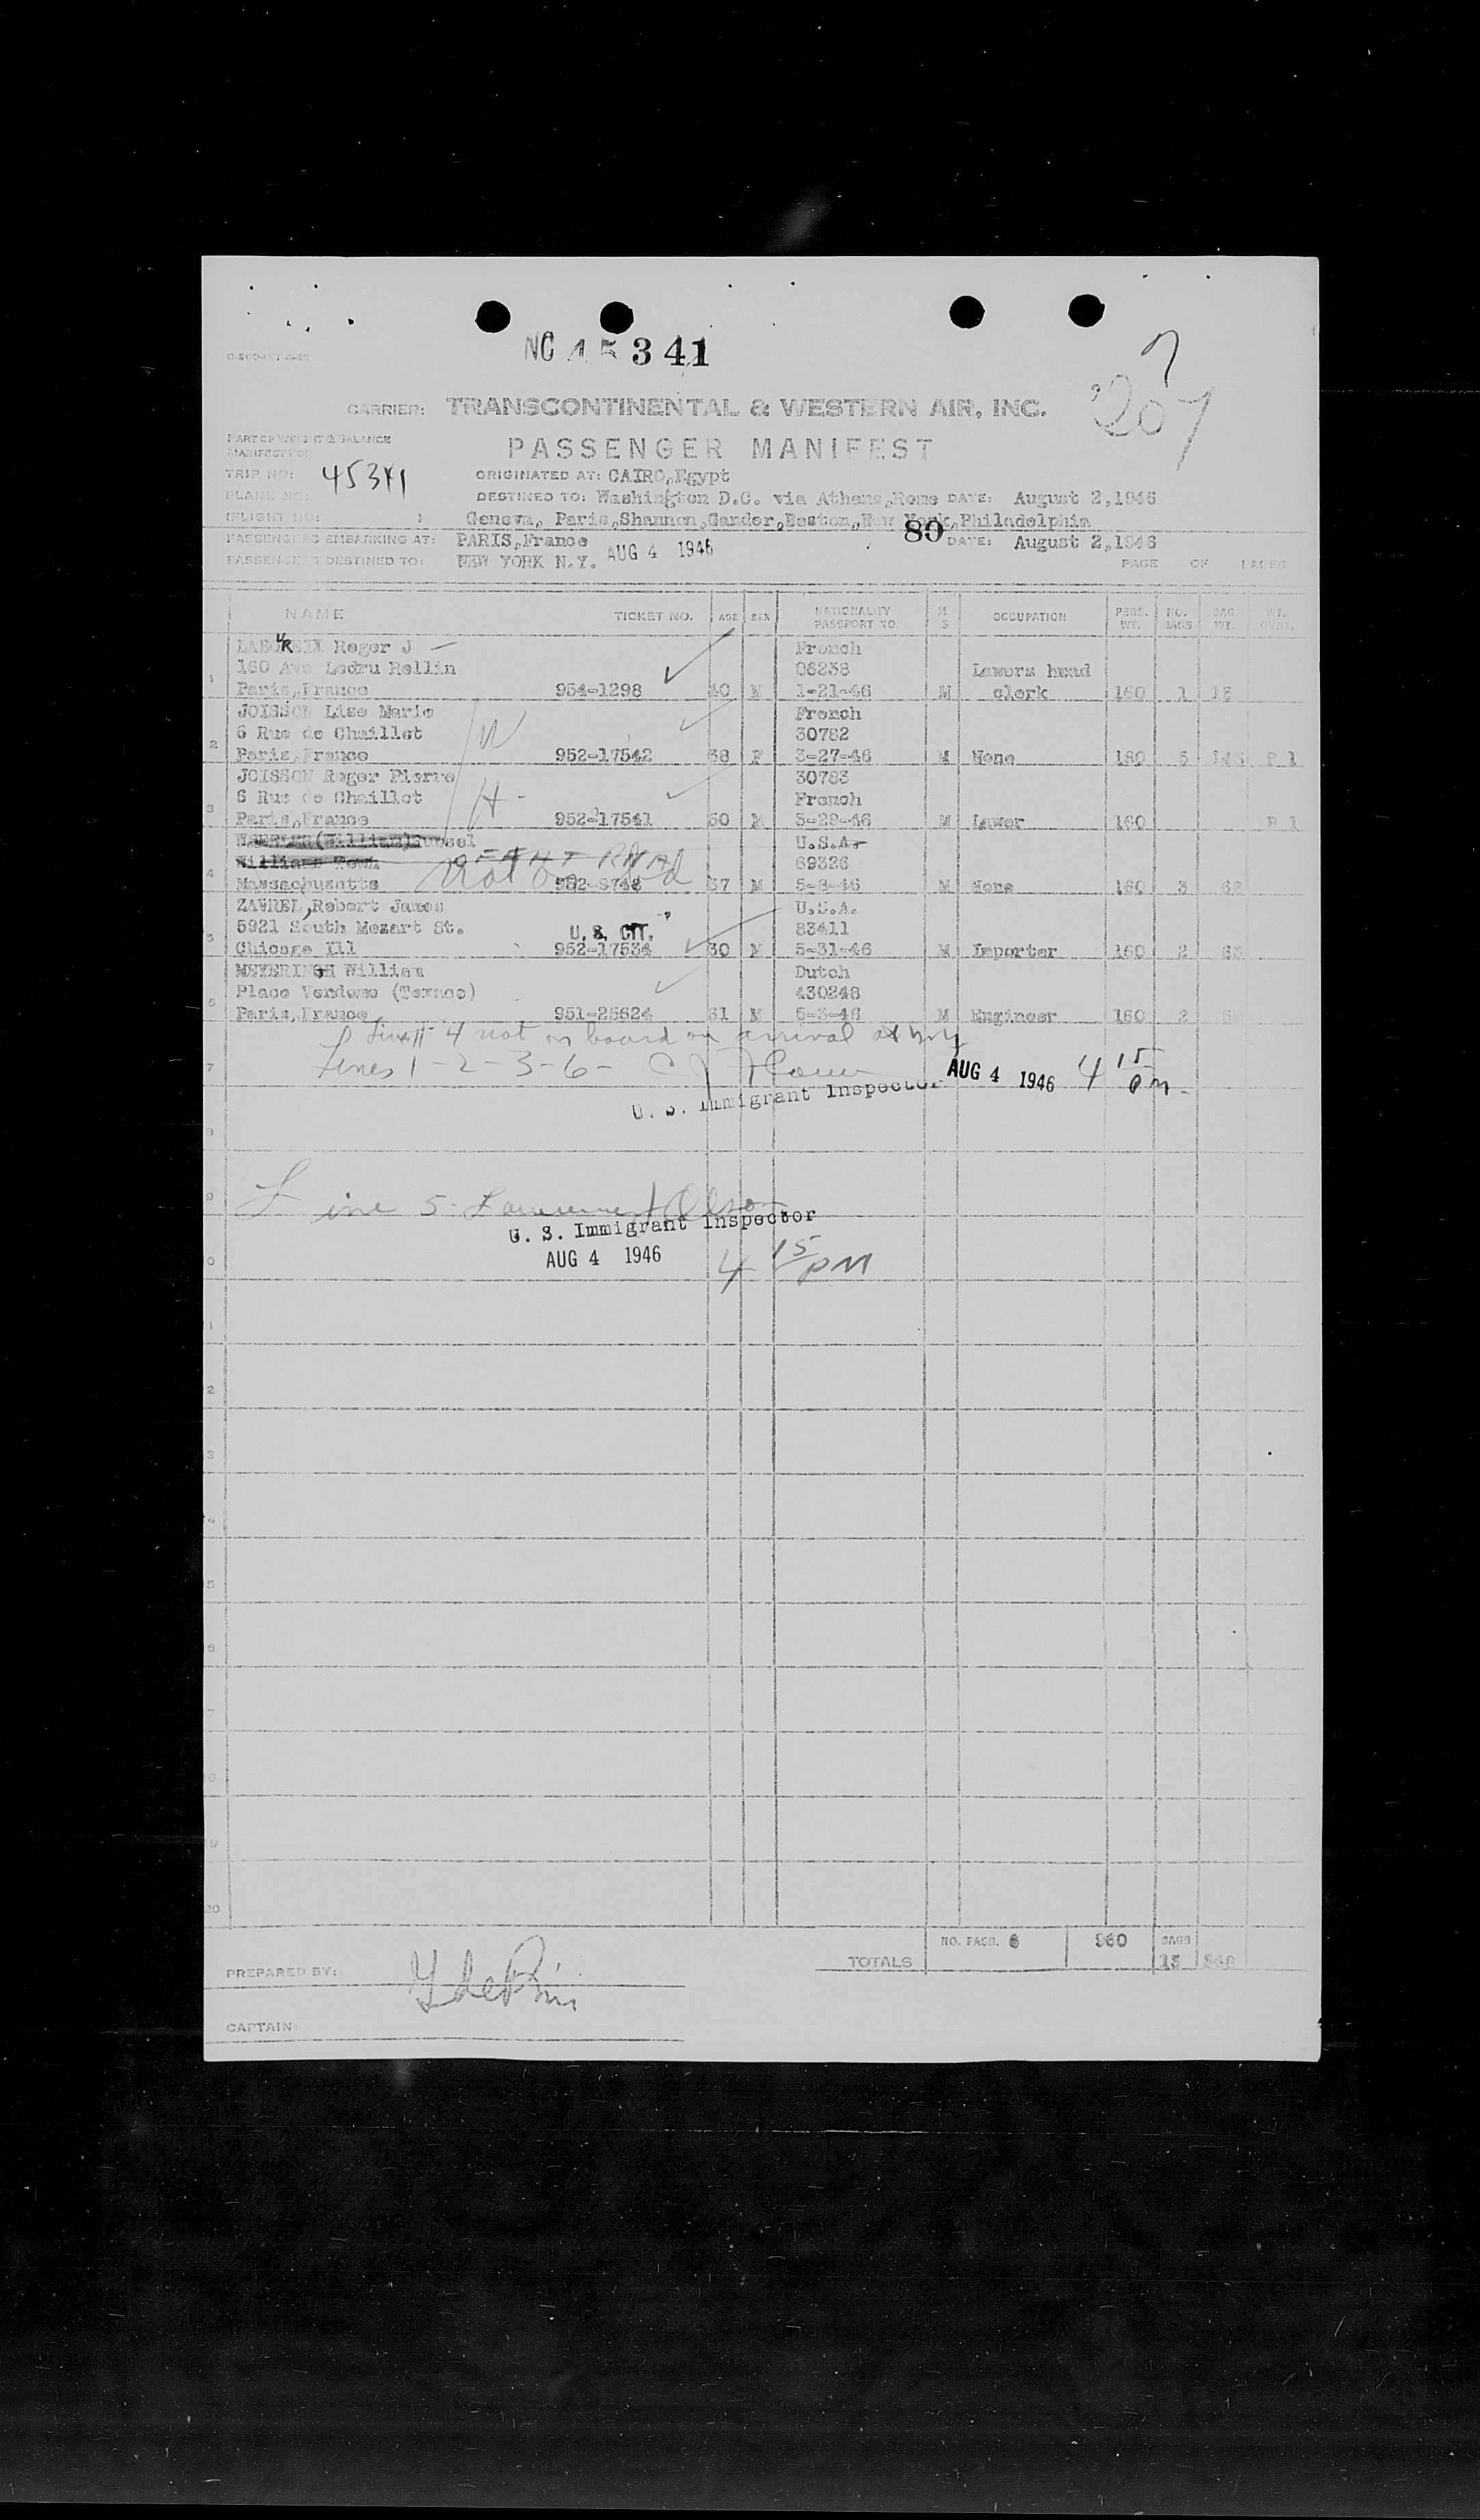 NC 45341
207
CARRIER: TRANSCONTINENTAL & WESTERN AIR, INC.
PART OF WEIGHT & BALANCE
MANIFEST FOR
PASSENGER MANIFEST
TRIP NO: 45341 ORIGINATED AT: CAIRO,Egypt
PLANE NO: DESTINED TO: Washington D.C. via Athens,Rome DATE: August 2,1946
(FLIGHT NO: ) Geneva, Paris,Shannon,Gander,Boston,New York,Philadelphia
89
PASSENGERS EMBARKING AT: PARIS,France DATE: August 2,1946
PASSENGERS DESTINED TO: NEW YORK N.Y. AUG 4 1946 PAGE OF PAGES
NAME TICKET NO. AGE SEX NATIONALITY PASSPORT NO. M S OCCUPATION PERS. WT. NO. BAGS BAG WT.
Roger J French
160 Ave Ledru Rollin 06238 Lawers head
1 Paris,France 954-1298 40 M 1-21-46 M clerk 160 1
JOISSON Lise Marie French
6 Rue de Chaillot 30782
2 Paris,France 952-17542 38 F 3-27-46 M None 5
JOISSON Roger Pierre 30783
6 Rue de Chaillot French
3 Paris,France 952-17541 50 M 3-29-46 M Lawer 160
(William) U.S.A.
Williams Town 69326
Not on Bd
4 Massachusetts 57 M 5-8-46 M None 160 3
ZAVREL,Robert James U.S.A.
5921 South Mozart St. U.S. CIT. 83411
5 Chicago Ill 952-17534 30 M 5-31-46 M Importer 160 2
William Dutch
Place Vendome (Texaco) 430248
6 Paris,France 951-25624 61 M 5-3-46 M Engineer 160 2
Line 4 not on board on arrival at NY
7 Lines 1-2-3-6- AUG 4 1946 4 15 PM-
U. S. Immigrant Inspector
8
9 Line 5-
U. S. Immigrant Inspector
AUG 4 1946 4 15 PM
0
1
2
3
4
5
6
7
8
9
20
NO. PASS. 6 960 BAGS
TOTALS 15 548
PREPARED BY:
CAPTAIN: